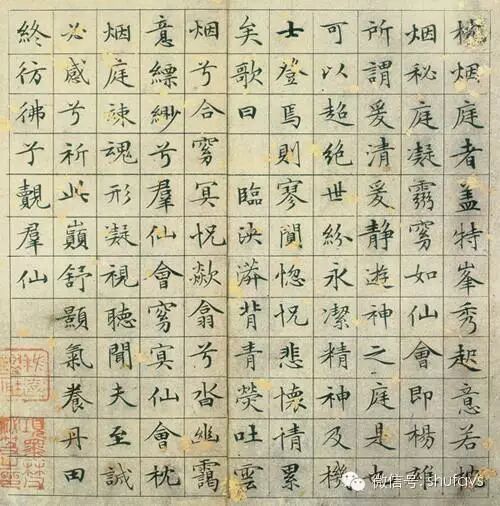 枕烟庭者盖特峯秀起意若枕
烟秘庭凝靈窅如仙會即楊雄
所謂爰清爰靜遊神之庭是也
可以超絕世紛永潔精神及機
士登焉則寥闃惚怳悲懷情累
矣歌曰 臨泱漭背青熒吐雲
烟兮合窅冥怳欻翕兮沓幽靄
意縹緲兮羣仙會窅冥仙會枕
烟庭竦魂形凝視聽聞夫至誠
必感兮祈此巔舒顥氣養丹田
終彷彿乎覿羣仙
微信号: shufavs